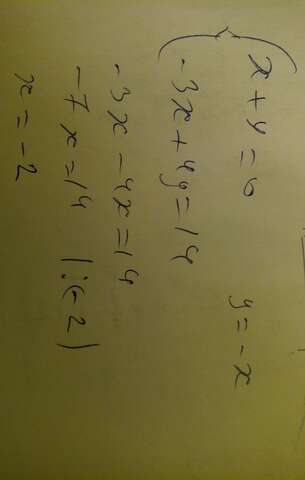 x + y = 0 y = -x
-3x + 4y = 14
-3x - 4x = 14
-7x = 14 |:(-2)
x = -2